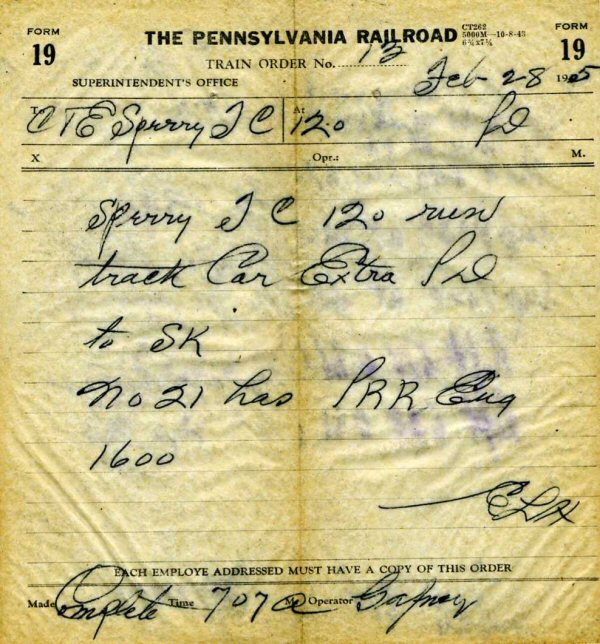 FORM 19
THE PENNSYLVANIA RAILROAD
CT262
5000M—10-8-43
6¾x7¼
FORM 19
TRAIN ORDER No. 13
SUPERINTENDENT'S OFFICE
Feb 28 1945
To C TE Sperry T C At 120 PD
X Opr.: M.
Sperry T C 120 run
track Car Extra PD
to SK
No 21 has PRR Eng
1600
EACH EMPLOYE ADDRESSED MUST HAVE A COPY OF THIS ORDER
Made Complete Time 707 a M Operator Gafney